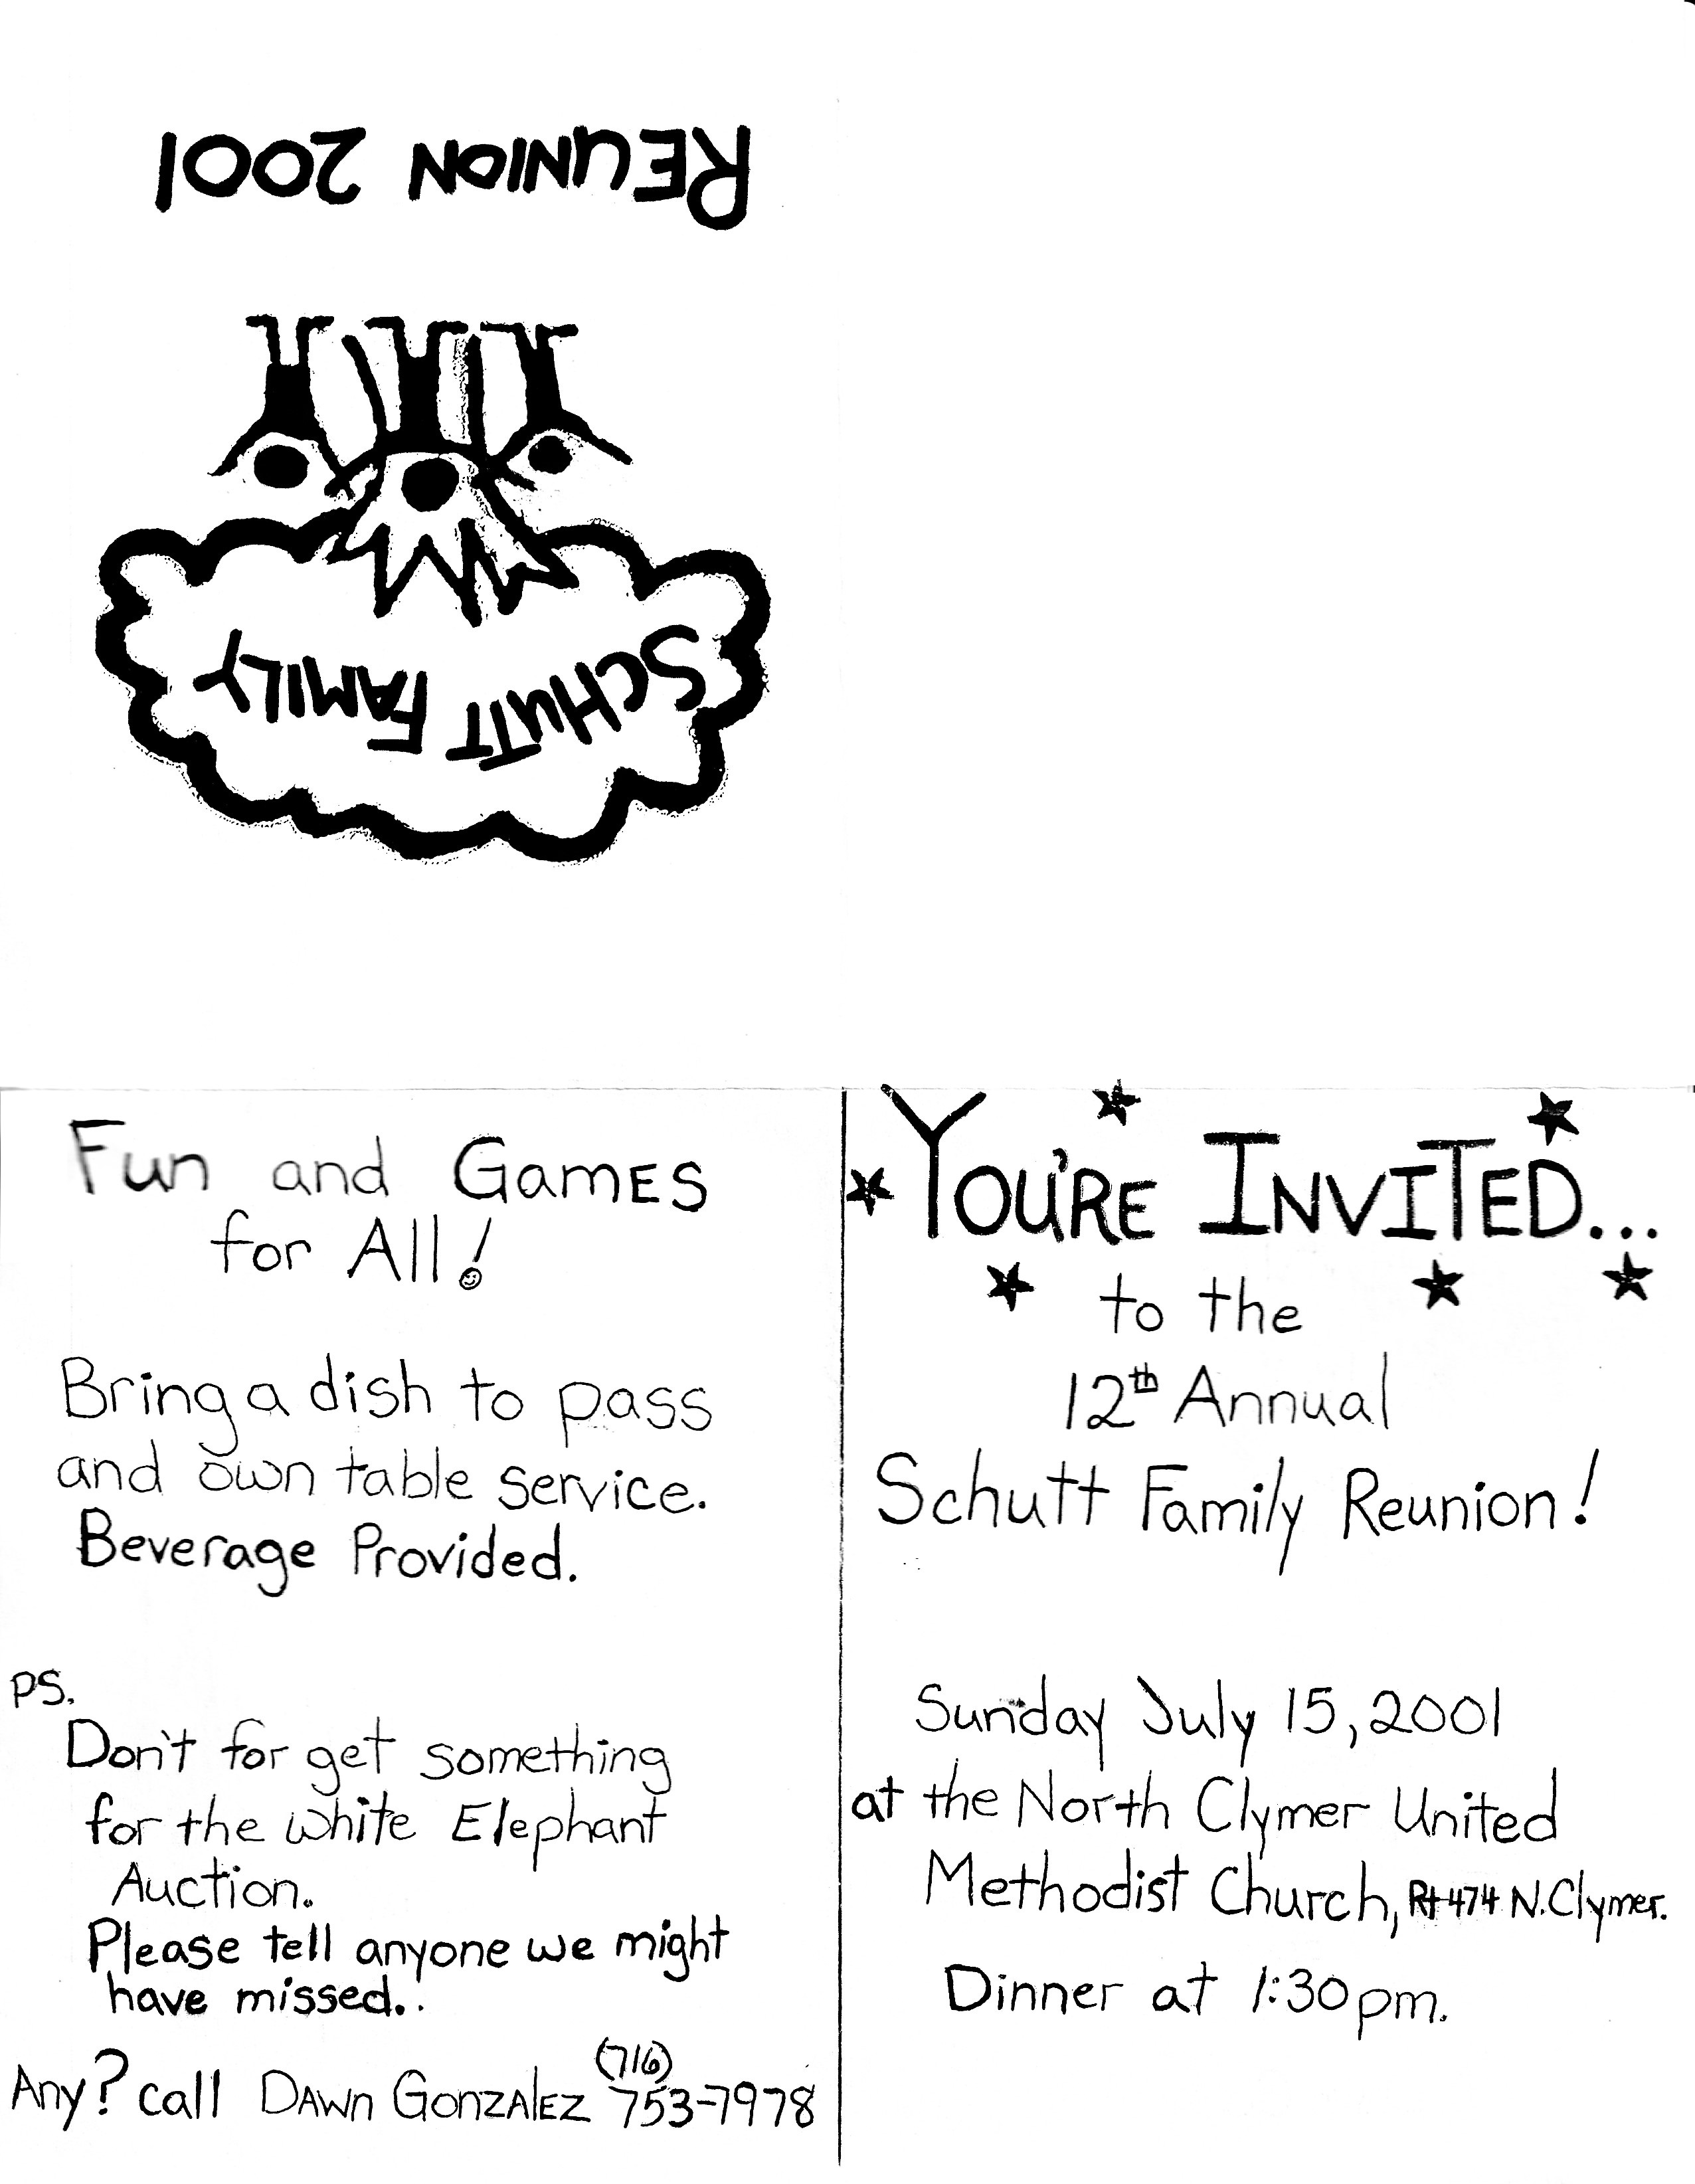 SCHUTT FAMILY
REUNION 2001
Fun and GamES
for All!
Bring a dish to pass
and own table service.
Beverage Provided.
PS.
Don't for get something
for the white Elephant
Auction.
Please tell anyone we might
have missed..
Any? call DAWN GONZAlEZ (716) 753-7978
YOU'RE INVITED...
to the
12th Annual
Schutt Family Reunion!
Sunday July 15, 2001
at the North Clymer United
Methodist Church, Rt 474 N. Clymer.
Dinner at 1:30 pm.